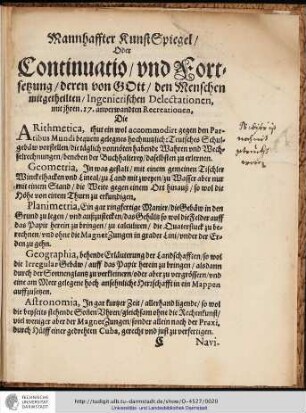 Mannhaffter KunstSpiegel/
Oder
Continuatio/ vnd Fort-
setzung/ deren von GOtt/ den Menschen
mitgetheilten/ Ingenierischen Delectationen,
mit jhren. 17. anverwandten Recreationen,
Die
Arithmetica, thut ein wol accommodirt gegen den Par-
tibus Mundi bequem gelegnes hochnutzlich: Teutsches Schul-
gebäw vorstellen/ die täglich vonnöten habende Wahren vnd Wech-
selrechnungen/ beneben der Buchhalterey/ daselbsten zu erlernen.
Geometria, In was gestalt/ mit einem gemeinen Tischler
Winckelhacken vnd Lineal/ zu Land mit zweyen zu Wasser aber nur
mit einem Stand/ die Weite gegen einem Ort hinauß/ so wol die
Höhe von einem Thurn zu erkundigen.
Planimetria, Ein gar ringfertige Manier/ die Gebäw in den
Grund zu legen/ vnd auffzustecken/ das Gehültz so wol die Felder auff
das Papir herein zu bringen/ zu calculiren/ die Quaterstuck zu be-
rechnen/ vnd ohne die Magnet Zungen in grader Lini/ vnder der Er-
den zu gehn.
Geographia, behende Erläuterung der Landschafften/ so wol
die Irregular Gebäw/ auff das Papir herein zu bringen/ alsdann
durch der Sonnenglantz zu verkleinern/ oder aber zu vergrössern/ vnd
eine am Meer gelegene hoch ansehnliche Herrschafft in ein Mappen
auffzuseyen.
Astronomia, In gar kurtzer Zeit/ allerhand ligende/ so wol
die beyseits stehende Sonen Uhren/ gleichsam ohne die Rechenkunst/
viel weniger aber der Magnet Zungen/ sonder allein nach der Praxi,
durch Hülff einer gedrehten Cubi, gerecht vnd just zu verfertigen.
C Navi-
http://tudigit.ulb.tu-darmstadt.de/show/O-4527/0020
Universitäts- und Landesbibliothek Darmstadt